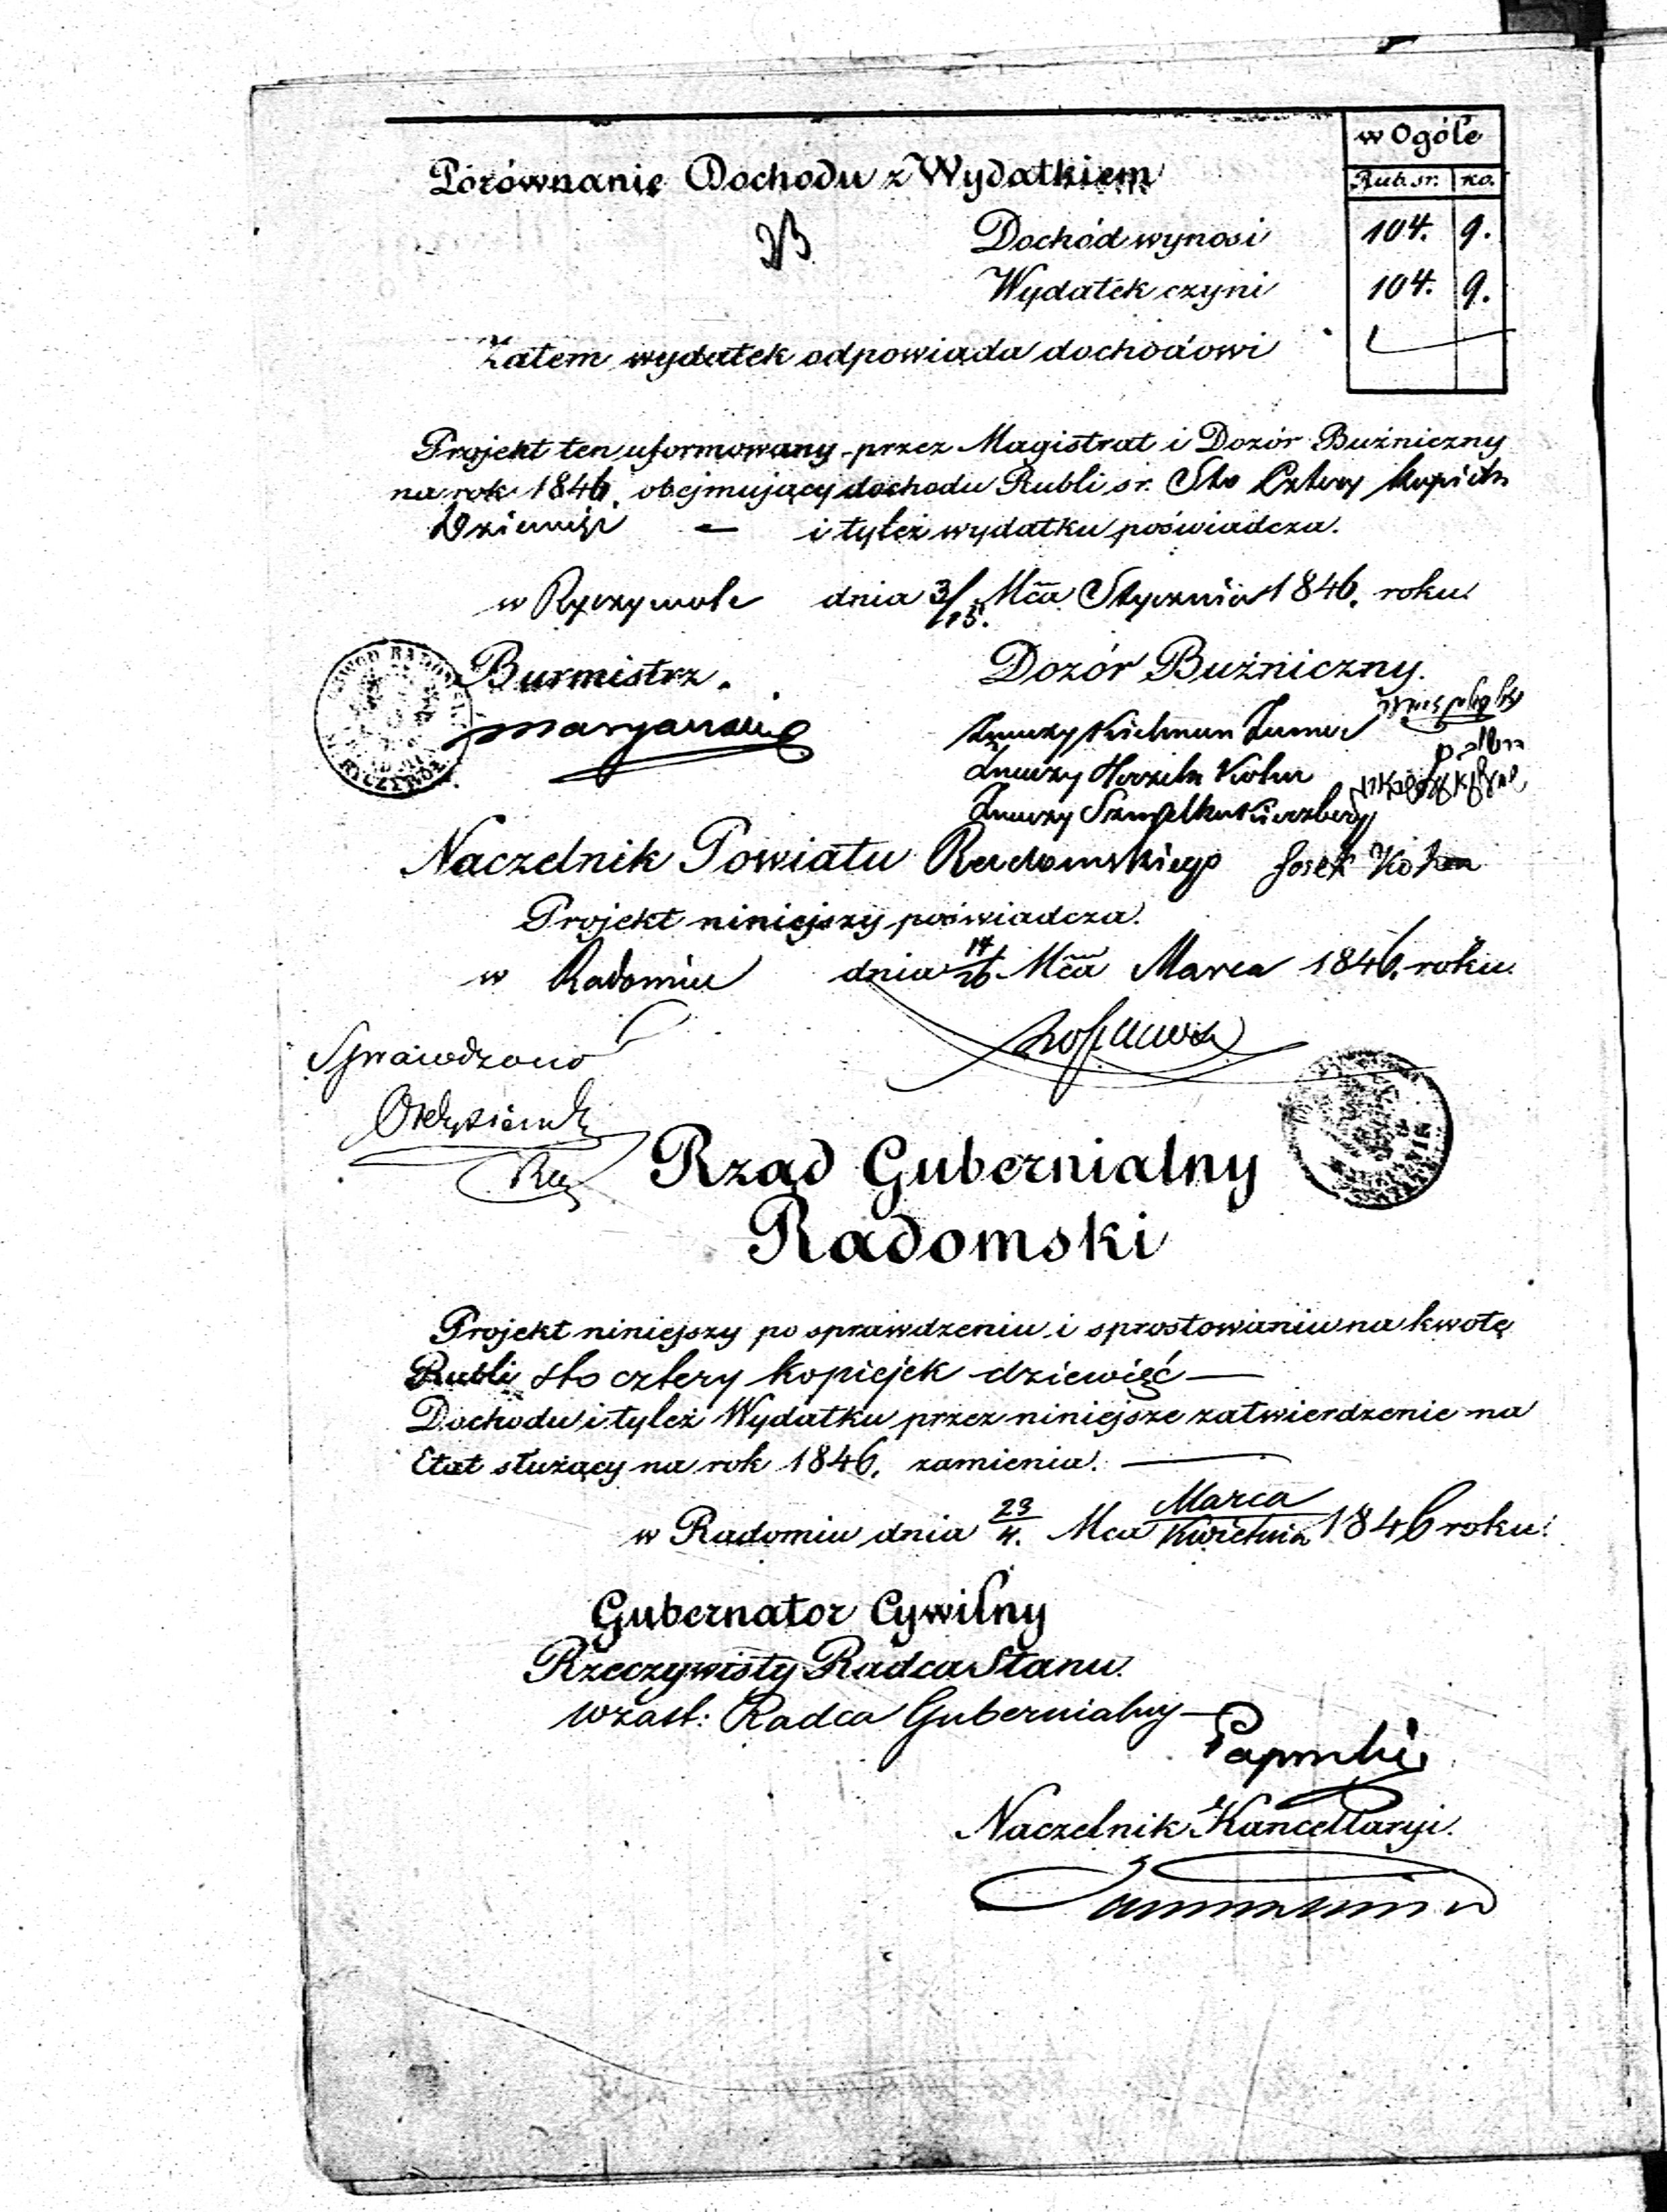 w Ogóle
Porównanie Dochodu z Wydatkiem
Rub. sr. ko.
Dochód wynosi 104. 9.
Wydatek czyni 104. 9.
Zatem wydatek odpowiada dochodowi
Projekt ten uformowany przez Magistrat i Dozór Bużniczny
na rok 1846. obejmujący dochodu Rubli sr. Sto Cztery Kopiek
Dziewięć — i tyleż wydatku poświadcza.
w Ryczywole dnia 3/15. Mca Stycznia 1846. roku.
Burmistrz. Dozór Bużniczny.
Herszla Kohn
Naczelnik Powiatu Radomskiego Josek Kohn
Projekt niniejszy poświadcza.
w Radomiu dnia 14/26. Mca Marca 1846. roku.
Sprawdzono
Rząd Gubernialny
Radomski
Projekt niniejszy po sprawdzeniu i sprostowaniu na kwotę
Rubli sto cztery kopiejek dziewięć —
Dochodu i tyleż Wydatku przez niniejsze zatwierdzenie na
Etat służący na rok 1846. zamienia. —
w Radomiu dnia 23/4. Mca Marca/Kwietnia 1846 roku.
Gubernator Cywilny
Rzeczywisty Radca Stanu.
w zast: Radca Gubernialny
Naczelnik Kancellaryi.